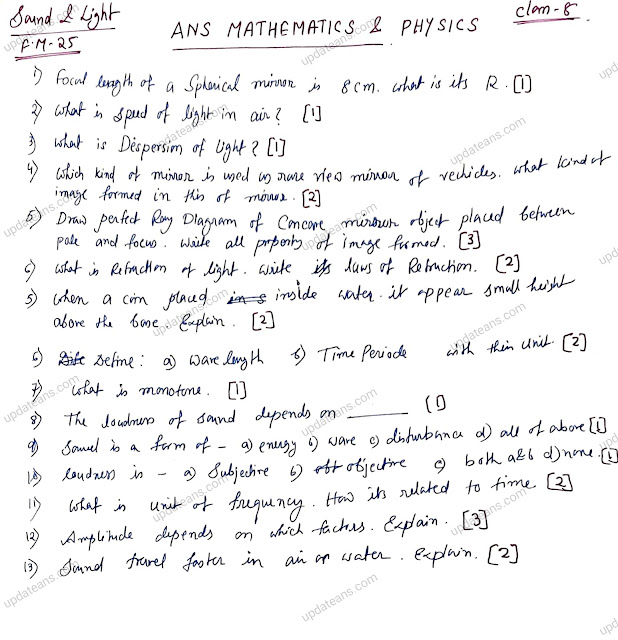 Sound & Light
F.M-25
ANS MATHEMATICS & PHYSICS
Class-8.
1) Focal length of a Spherical mirror is 8cm. what is its R. [1]
2) what is speed of light in air? [1]
3) what is Dispersion of light? [1]
4) which kind of mirror is used as rare view mirror of vechicles. what kind of
image formed in this of mirror. [2]
5) Draw perfect Ray Diagram of Concave mirror object placed between
pole and focus. write all property of image formed. [3]
6) what is Refraction of light. write its laws of Refraction. [2]
5) when a coin placed inside water. it appear small height
above the base. Explain. [2]
6) Define: a) wave length b) Time Periode with their unit. [2]
7) what is monotone. [1]
8) The loudness of sound depends on ______ (1)
9) Sound is a form of - a) energy b) wave c) disturbance d) all of above [1]
10) loudness is - a) Subjective b) objective c) both a&b d) none. [1]
11) what is unit of frequency. How its related to time [2]
12) Amplitude depends on which factors. Explain. [3]
13) Sound travel faster in air or water. explain. [2]
updateans.com